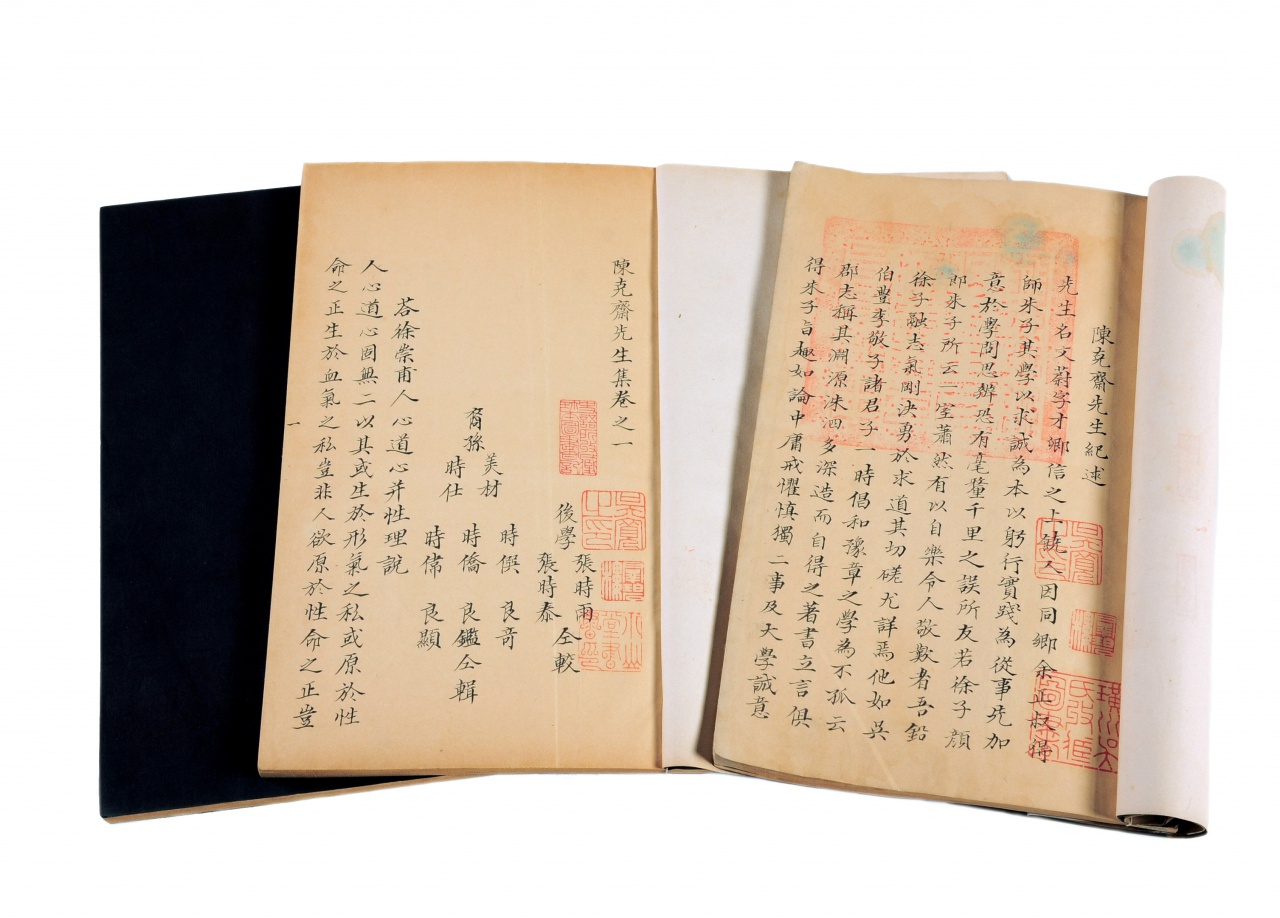 陳克齋先生紀述
先生名文蔚字才卿信之上饒人因同鄉余正叔得
師朱子其學以求誠為本以躬行實踐為從事先加
意於學問思辨恐有毫釐千里之誤所友若徐子顏
即朱子所云一室蕭然有以自樂令人敬歎者吾鉛
徐子融志氣剛決勇於求道其切磋尤詳焉他如吳
伯豐李敬子諸君子一時倡和豫章之學為不孤云
郡志稱其淵源洙泗多深造而自得之著書立言俱
得朱子旨趣如論中庸戒懼慎獨二事及大學誠意
陳克齋先生集卷之一
後學張時雨
張時泰仝較
裔孫美材
時仕
時俁
時僑
時偉
良奇
良鑑仝輯
良顯
荅徐崇甫人心道心并性理說
人心道心固無二以其或生於形氣之私或原於性
命之正生於血氣之私豈非人欲原於性命之正豈
一